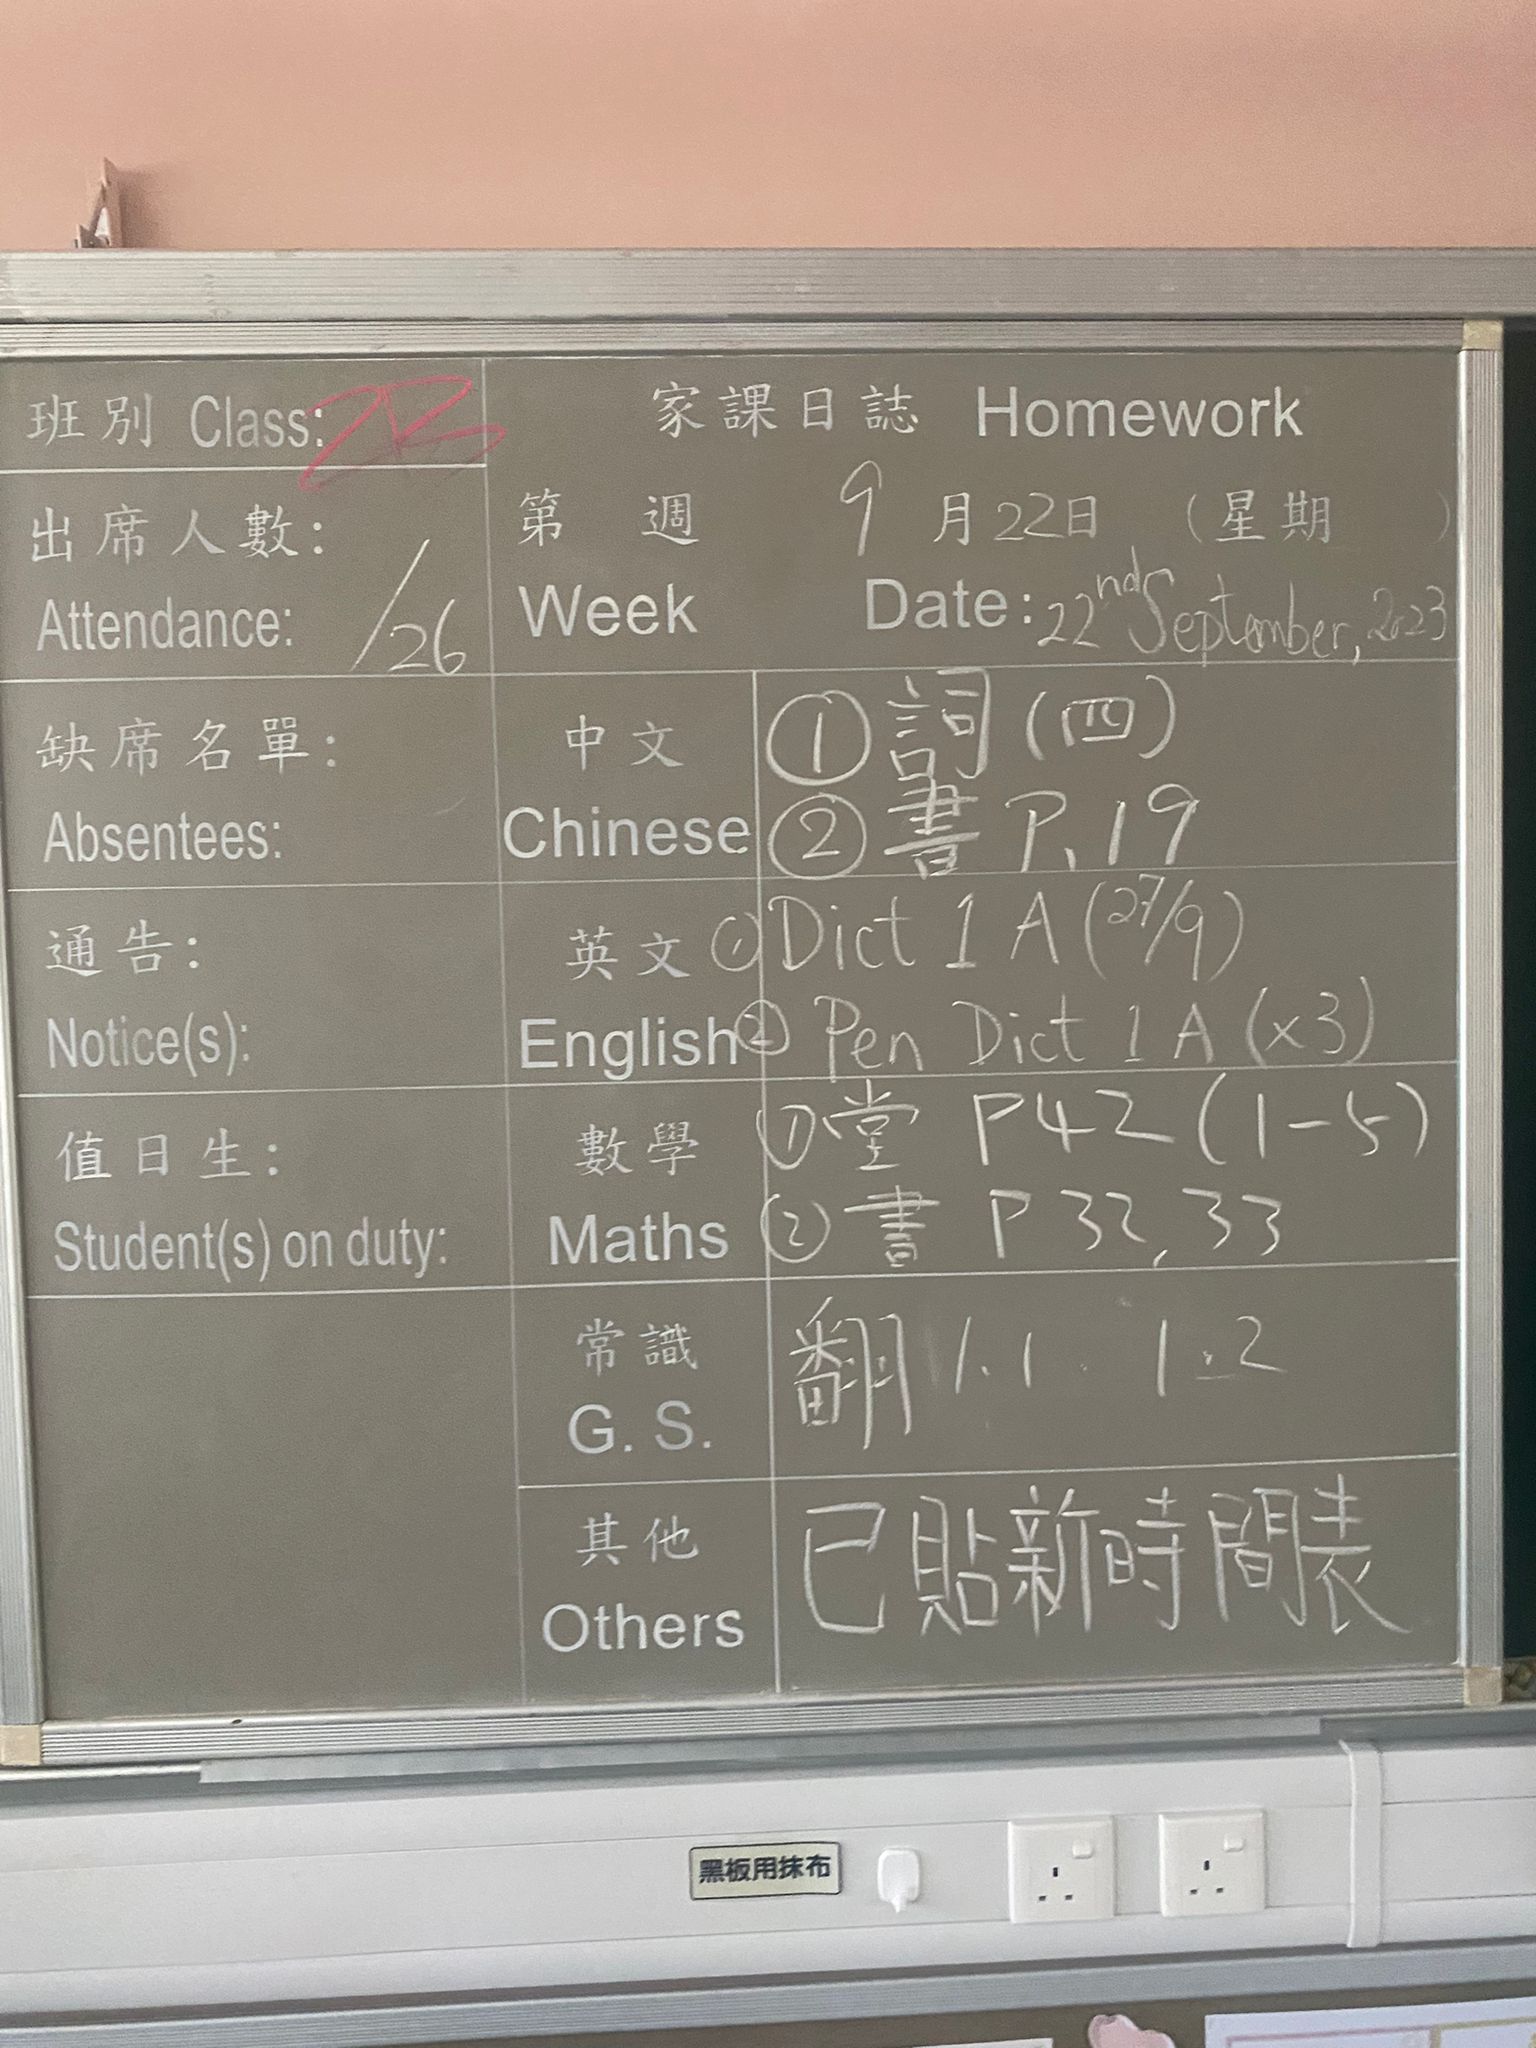 班別 Class: 2B
家課日誌 Homework
出席人數:
Attendance: /26
第 週 9月22日 (星期 )
Week Date: 22nd September, 2023
缺席名單:
Absentees:
中文
Chinese
① 詞(四)
② 書 P.19
通告:
Notice(s):
英文
English
① Dict 1A (27/9)
② Pen Dict 1A (x3)
值日生:
Student(s) on duty:
數學
Maths
① 堂 P42 (1-5)
② 書 P32, 33
常識
G. S.
翻 1.1 1.2
其他
Others
已貼新時間表
黑板用抹布